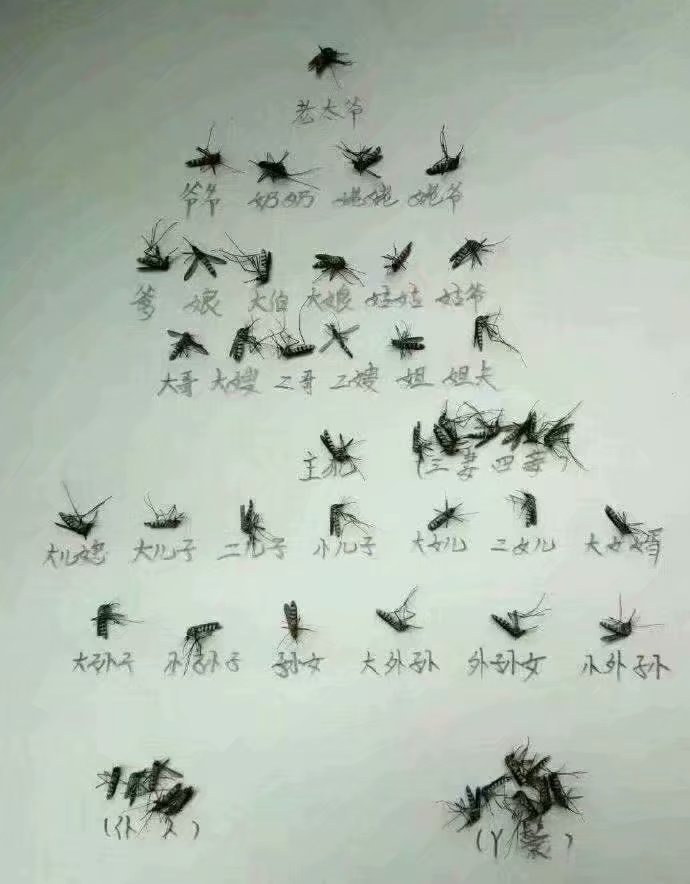 老太爷
爷爷 奶奶 姥姥 姥爷
爹 娘 大伯 大娘 姑姑 姑爷
大哥 大嫂 二哥 二嫂 姐 姐夫
主犯 (三妻四妾)
大儿媳 大儿子 二儿子 小儿子 大女儿 二女儿 大女婿
大孙子 小孙子 孙女 大外孙 外孙女 小外孙
(仆人) (丫鬟)